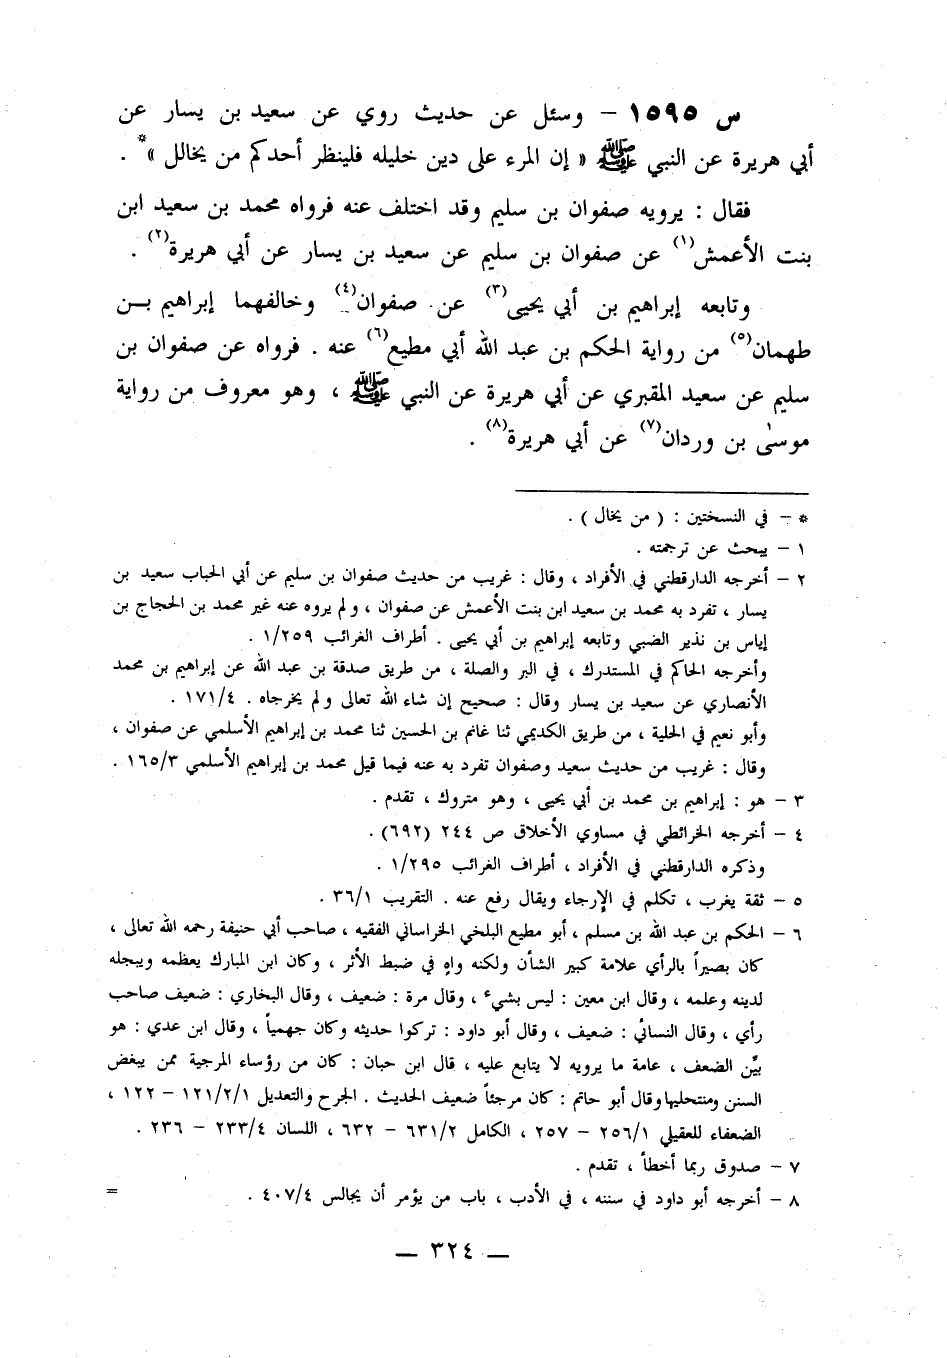 س ١٥٩٥ – وسئل عن حديث روي عن سعيد بن يسار عن
أبي هريرة عن النبي ﷺ « إن المرء على دين خليله فلينظر أحدكم من يخالل »* .
فقال : يرويه صفوان بن سليم وقد اختلف عنه فرواه محمد بن سعيد ابن
بنت الأعمش(١) عن صفوان بن سليم عن سعيد بن يسار عن أبي هريرة(٢) .
وتابعه إبراهيم بن أبي يحيى(٣) عن صفوان(٤) وخالفهما إبراهيم بـــن
طهمان(٥) من رواية الحكم بن عبد الله أبي مطيع(٦) عنه . فرواه عن صفوان بن
سليم عن سعيد المقبري عن أبي هريرة عن النبي ﷺ ، وهو معروف من رواية
موسىٰ بن وردان(٧) عن أبي هريرة(٨) .
* – في النسختين : ( من يخال ) .
١ – يبحث عن ترجمته .
٢ – أخرجه الدارقطني في الأفراد ، وقال : غريب من حديث صفوان بن سليم عن أبي الحباب سعيد بن
يسار ، تفرد به محمد بن سعيد ابن بنت الأعمش عن صفوان ، ولم يروه عنه غير محمد بن الحجاج بن
إياس بن نذير الضبي وتابعه إبراهيم بن أبي يحيى . أطراف الغرائب ١/٢٥٩ .
وأخرجه الحاكم في المستدرك ، في البر والصلة ، من طريق صدقة بن عبد الله عن إبراهيم بن محمد
الأنصاري عن سعيد بن يسار وقال : صحيح إن شاء الله تعالى ولم يخرجاه . ١٧١/٤ .
وأبو نعيم في الحلية ، من طريق الكديمي ثنا غانم بن الحسين ثنا محمد بن إبراهيم الأسلمي عن صفوان ،
وقال : غريب من حديث سعيد وصفوان تفرد به عنه فيما قيل محمد بن إبراهيم الأسلمي ١٦٥/٣ .
٣ – هو : إبراهيم بن محمد بن أبي يحيى ، وهو متروك ، تقدم .
٤ – أخرجه الخرائطي في مساوي الأخلاق ص ٢٤٤ (٦٩٢) .
وذكره الدارقطني في الأفراد ، أطراف الغرائب ١/٢٩٥ .
٥ – ثقة يغرب ، تكلم في الإرجاء ويقال رفع عنه . التقريب ٣٦/١ .
٦ – الحكم بن عبد الله بن مسلم ، أبو مطيع البلخي الخراساني الفقيه ، صاحب أبي حنيفة رحمه الله تعالى ،
كان بصيراً بالرأي علامة كبير الشأن ولكنه واهٍ في ضبط الأثر ، وكان ابن المبارك يعظمه ويبجله
لدينه وعلمه ، وقال ابن معين : ليس بشيء ، وقال مرة : ضعيف ، وقال البخاري : ضعيف صاحب
رأي ، وقال النسائي : ضعيف ، وقال أبو داود : تركوا حديثه وكان جهمياً ، وقال ابن عدي : هو
بيِّن الضعف ، عامة ما يرويه لا يتابع عليه ، قال ابن حبان : كان من رؤساء المرجية ممن يبغض
السنن ومنتحليها وقال أبو حاتم : كان مرجئاً ضعيف الحديث . الجرح والتعديل ١٢١/٢/١ – ١٢٢ ،
الضعفاء للعقيلي ٢٥٦/١ – ٢٥٧ ، الكامل ٦٣١/٢ – ٦٣٢ ، اللسان ٢٣٣/٤ – ٢٣٦ .
٧ – صدوق ربما أخطأ ، تقدم .
٨ – أخرجه أبو داود في سننه ، في الأدب ، باب من يؤمر أن يجالس ٤٠٧/٤ . =
— ٣٢٤ —